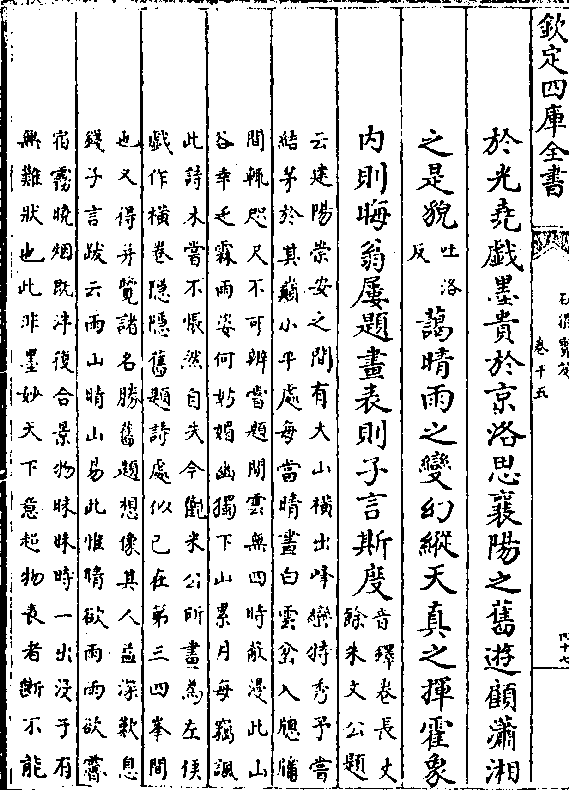 欽定四庫全書
卷十五
於光堯戲墨貴於京洛思襄陽之舊遊顧瀟湘
之是貌吐洛反藹晴雨之變幻縱天真之揮霍象
內則晦翁屢題畫表則子言斯度音繹卷長丈
餘朱文公題
云建陽崇安之間有大山橫出峰巒特秀予嘗
結茅於其巔小平處每當晴晝白雲坌入牕牖
間輒咫尺不可辨嘗題閒雲無四時散漫此山
谷幸乏霖雨姿何妨媚幽獨下山累月每竊諷
此詩未嘗不悵然自失今觀米公所畫為左侯
戲作橫卷隱隱舊題詩處似已在第三四峯間
也又得并覽諸名勝舊題想像其人益深歎息
錢子言跋云雨山晴山易此惟晴欲雨雨欲霽
宿霧曉烟既泮復合景物昧昧時一出沒于有
無難狀也此非墨妙天下意超物表者斷不能